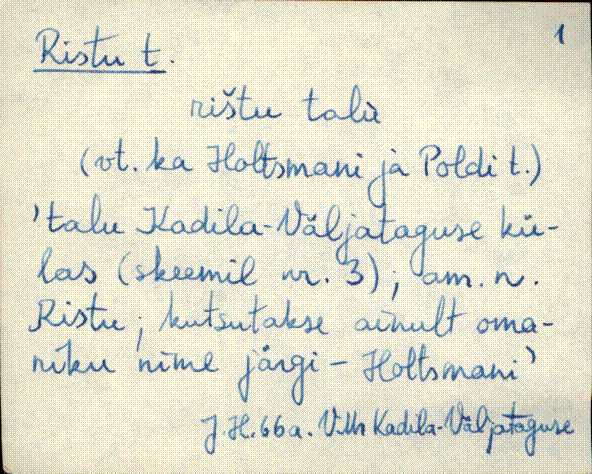 1
Ristu t.
rištu talù
(vt. ka Holtsmani ja Poldi t.)
'talu Kadila-Väljataguse kü-
las (skeemil nr. 3); am. n.
Ristu; kutsutakse ainult oma-
niku nime järgi - Holtsmani'
J. H. 66 a. V.Mr Kadila-Väljataguse